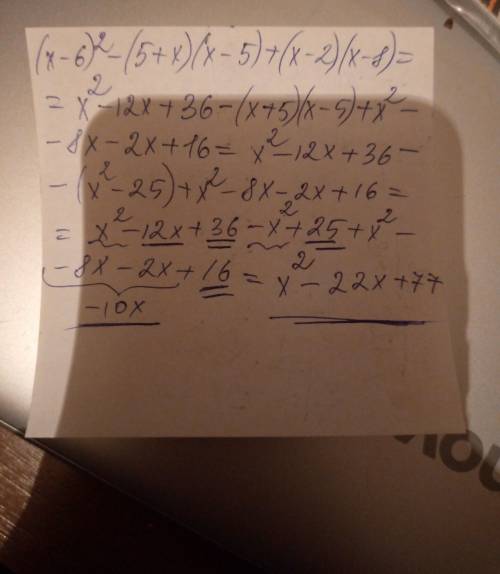 (x-6)² - (5+x)(x-5) + (x-2)(x-8) =
= x² - 12x + 36 - (x+5)(x-5) + x² -
- 8x - 2x + 16 = x² - 12x + 36 -
- (x² - 25) + x² - 8x - 2x + 16 =
= x² - 12x + 36 - x² + 25 + x² -
- 8x - 2x + 16 = x² - 22x + 77
-10x